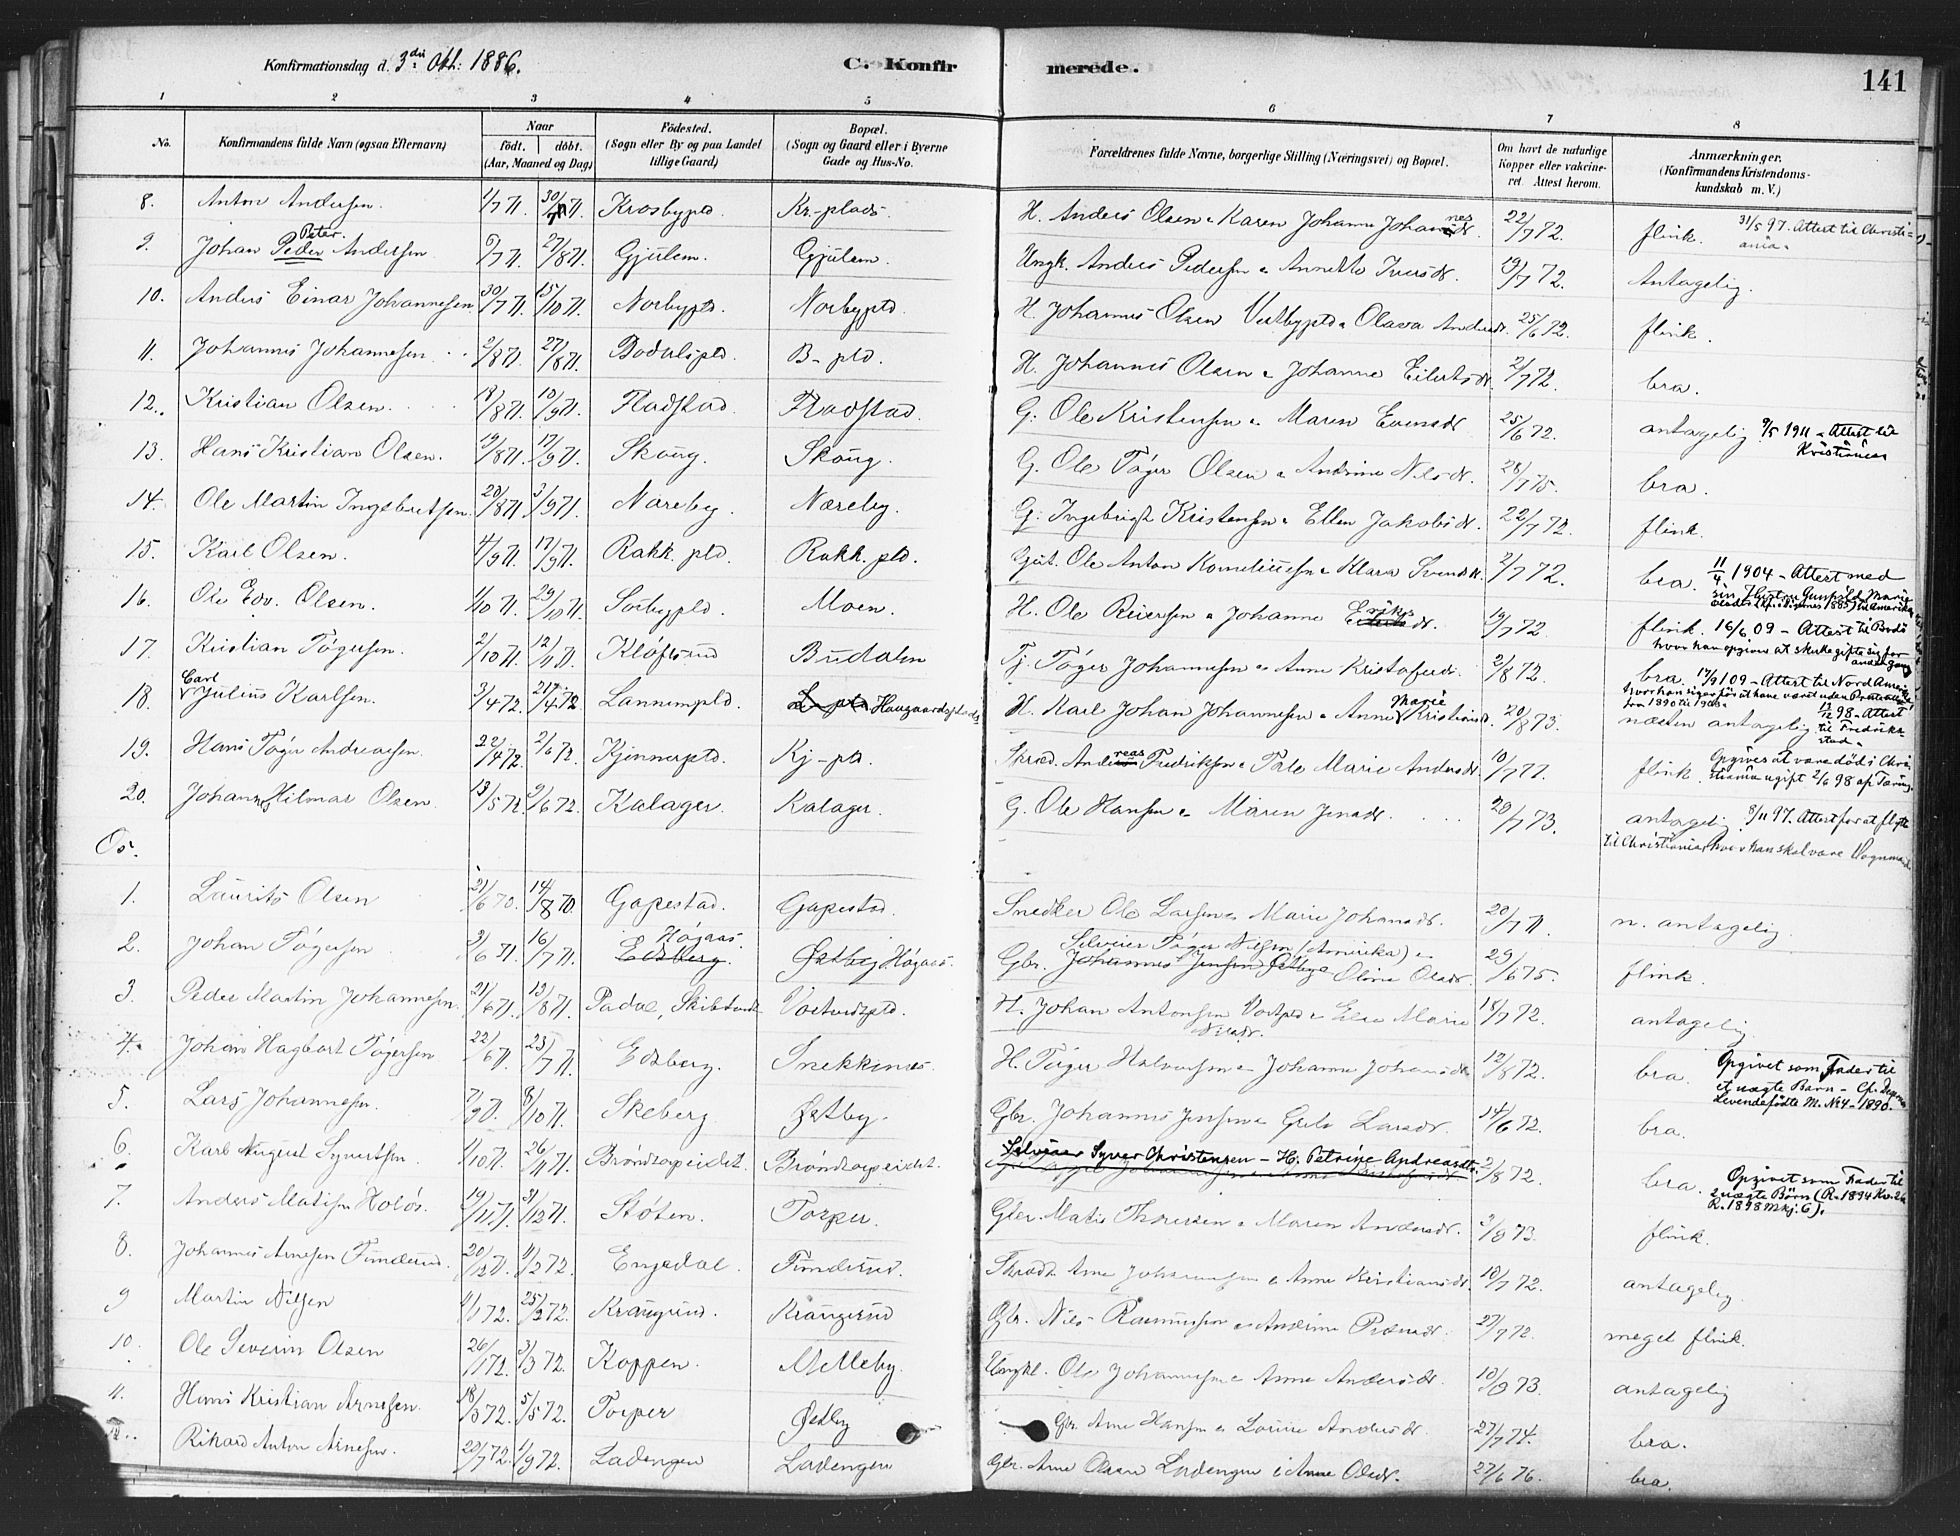 Konfirmationsdag d. 3die Okt: 1886.
C. Konfirmerede.
141
1 2 3 4 5 6 7 8
No. Konfirmandens fulde Navn (ogsaa Efternavn) Naar født. døbt. (Aar, Maaned og Dag) Födested. (Sogn eller By og paa Landet tillige Gaard) Bopæl. (Sogn og Gaard eller i Byerne Gade og Hus-No. Forældrenes fulde Navne, borgerlige Stilling (Næringsvei) og Bopæl. Om havt de naturlige Kopper eller vakcineret. Attest herom. Anmærkninger. (Konfirmandens Kristendomskundskab m. V.)
8. Anton Andersen. 1/7 71. 30/7 71. Krosbypld. Kr-plads. H. Anders Olsen & Karen Johanne Johannesdr. 22/7 72. flink. 31/5 97. Attert til Christiania.
9. Johan Peder Peter Andersen 6/7 71. 27/8 71. Gjulem. Gjulem. Ungk. Anders Pedersen & Annette Iversdr. 19/7 72. Antagelig.
10. Anders Einar Johannesen 30/7 71. 15/10 71. Norbypld. Norbypld. H. Johannes Olsen Vestbypld & Olava Andersdr. 25/6 72. flink.
11. Johannes Johannesen 2/8 71. 27/8 71. Bodalspld. B- pld. H. Johannes Olsen & Johanne Eilertsdr. 2/7 72. bra.
12. Kristian Olsen. 18/8 71. 10/9 71. Fladstad. Fladstad. G. Ole Kristensen & Maren Evensdr 25/6 72. antagelig 9/5 1911 - Attest til Kristiania
13. Hans Kristian Olsen. 19/8 71. 17/9 71. Skoug. Skoug. G. Ole Tøger Olsen & Andrine Nilsdr. 28/7 75. bra.
14. Ole Martin Ingebretsen 20/8 71. 3/9 71. Næreby. Næreby. G. Ingebrigt Kristensen & Ellen Jakobsdr. 22/7 72. flink.
15. Karl Olsen. 4/9 71. 17/9 71. Rakk. pld. Rakk. pld. Gjut. Ole Anton Korneliussen & Klara Svendsdr. 2/7 72. bra. 11/4 1904 - Attest med sin Hustru Gunhild Marie til Amerika
16. Ole Edv. Olsen. 1/10 71. 29/10 71. Sørbypld. Moen. H. Ole Reiersen & Johanne Eriksdr. 19/7 72. flink. 16/6 09 - Attest til Bodø hvor han opgiver at skulle gifte sig for anden gang
17. Kristian Tøgersen. 2/10 71. 12/11 71. Kløfsrud Budalen Tj. Tøger Johannesen & Anne Kristofersdr. 2/8 72. bra 17/9 09 - Attest til Nord Amerika
18. Carl Julius Karlsen. 3/4 72. 21/4 72. Lannempld. L-pld. Haugaardsplads H. Karl Johan Johannesen & Anne Marie Kristiansdr. 20/8 73. næsten antagelig 12/12 98 - Attest til Fredrikstad.
19. Hans Tøger Andreasen. 22/4 72. 2/6 72. Kjennerpld. Kj-pld. Skræd. Andreas Fredriksen & Pale Marie Andersdr. 10/7 77. flink. Opgives at være død i Christiania ugift 2/6 98 af Tæring.
20. Johan Hilmar Olsen. 13/5 72. 9/6 72. Kalager. Kalager. G. Ole Hansen & Maren Jensdr. 20/7 73. antagelig. 8/11 97. Attest for at flytte til Christiania, hvor han skal være Vognmand.
Os.
1. Laurits Olsen 21/6 70. 14/8 70. Gapestad. Gapestad. Snedker Ole Larsen & Marie Johansdr. 20/7 71. n. antagelig.
2. Johan Tøgersen 3/6 71. 16/7 71. Høgaas. Edsberg. Østby Høgaas. Selveier Tøger Nilsen (Amerika) & Gbr. Johannes Jensen Østby Oline Olsdr. 29/6 75. flink.
3. Peder Martin Johannesen. 21/6 71. 13/8 71. Padal, Skibtvedt Vortvedtpld. H. Johan Antonsen Vortpld & Else Marie Nilsdr. 18/7 72. antagelig.
4. Johan Hagbart Tøgersen 22/6 71. 23/7 71. Edsberg. Snekkenes. H. Tøger Halvorsen & Johanne Johansdr. 12/8 72. bra. Opgivet som Fader til et uægte Barn - Levendefødte M. No 4 - 1890.
5. Lars Johannesen. 7/9 71. 8/10 71. Skeberg. Østby. Gbr. Johannes Jensen & Grete Larsdr. 14/6 72. bra.
6. Karl August Syvertsen 1/10 71. 26/11 71. Brøndtorpeidet. Brøndtorpeidet. Selveier Syver Christensen - H. Petrine Andreasdtr. 2/8 72. bra. Opgivet som Fader til 2 uægte Børn (R. 1894 Kv. 26 R. 1898 Mkj. 6).
7. Anders Matisen Holøs. 19/11 71. 31/12 71. Støten. Torper. Gbr. Matis Thoresen & Maren Andersdr. 3/9 73. flink.
8. Johannes Arnesen Funderud. 20/12 71. 4/2 72. Engedal. Funderud. Skrædr. Arne Johannesen & Anne Kristiansdr. 18/7 72. antagelig.
9 Martin Nilsen 1/1 72. 25/2 72. Kraugrud. Kraugerud Gbr. Nils Rasmussen & Andrine Pedersdr. 27/7 72. meget flink.
10. Ole Severin Olsen 26/1 72. 3/3 72. Koppen. Melleby. Ungkl. Ole Johannesen & Anne Andersdr. 10/9 73. antagelig
11. Hans Kristian Arnesen. 18/3 72. 5/5 72. Torper Østby Gbr. Arne Hansen & Lovise Andersdr. 27/7 74. bra.
Rikard Anton Arnesen. 22/7 72. 1/9 72. Ladengen Ladengen Gbr. Arne Olsen Ladengen & Anne Olsdr. 27/6 76. bra.